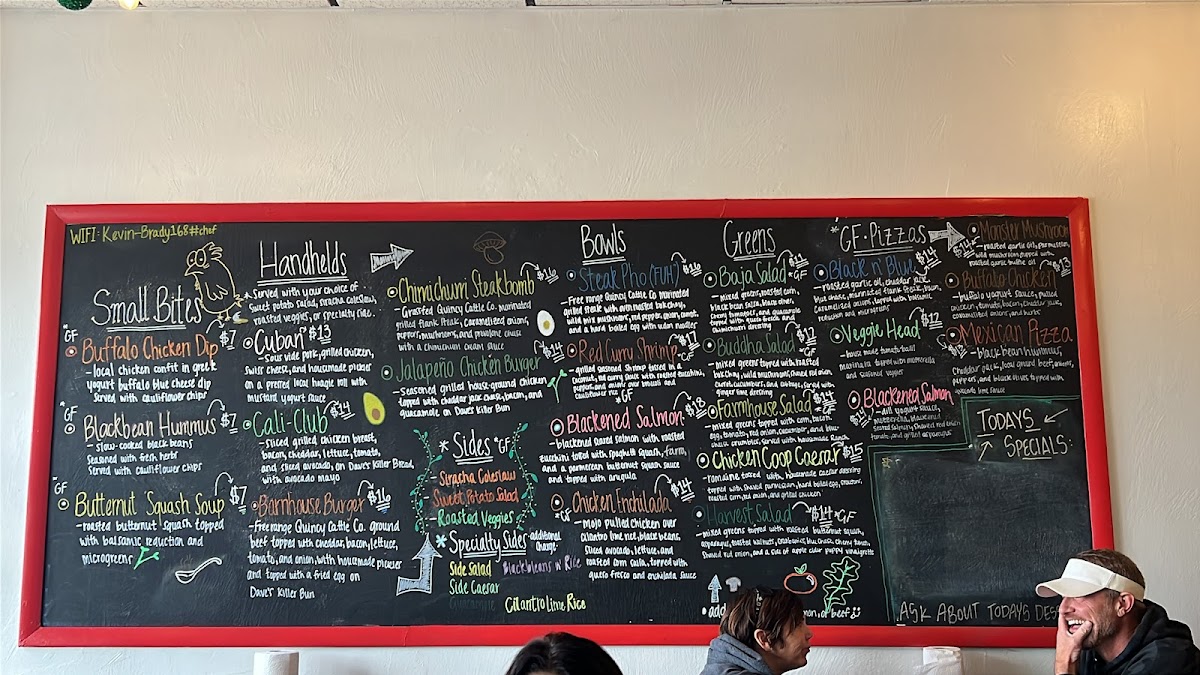 WIFI: Kevin-Brady168#chef
Small Bites
*GF
Buffalo Chicken Dip $7
- local chicken confit in greek
yogurt buffalo blue cheese dip
Served with cauliflower chips
*GF
Blackbean Hummus $7
- slow-cooked black beans
Seasoned with fresh herbs
Served with cauliflower chips
*GF
Butternut Squash Soup $7
- roasted butternut squash topped
with balsamic reduction and
microgreens
Handhelds
* Served with your choice of
sweet potato salad, siracha coleslaw,
roasted veggies, or specialty side.
Cuban $13
- Sous vide pork, grilled chicken,
swiss cheese, and housemade pickles
on a pressed local hoagie roll with
mustard yogurt sauce
Cali-Club $14
- sliced grilled chicken breast,
bacon, cheddar, lettuce, tomato,
and sliced avocado, on Dave's Killer Bread,
with avocado mayo
Barnhouse Burger $16
- Free range Quincy Cattle Co. ground
beef topped with cheddar, bacon, lettuce,
tomato, and onion, with housemade pickles
and topped with a fried egg on
Dave's Killer Bun
Chimichurri Steakbomb $16
- Grassfed Quincy Cattle Co. marinated
grilled flank steak, caramelized onions,
peppers, mushrooms, and provolone cheese
with a chimichurri cream sauce
Jalapeño Chicken Burger $14
- seasoned grilled house-ground chicken
topped with cheddar jack cheese, bacon, and
guacamole, on Dave's Killer Bun
* Sides *GF
- Siracha Coleslaw
- Sweet Potato Salad
- Roasted Veggies
* Specialty Sides - additional charge-
Side Salad
Black beans n' Rice
Side Caesar
Cilantro Lime Rice
Bowls
Steak Pho (FUH) $16
- Free range Quincy Cattle Co marinated
grilled steak with oven roasted bok choy,
wild mix mushrooms, red pepper, onion, carrot,
and a hard boiled egg with udon noodles
Red Curry Shrimp $17
*GF
- grilled seasoned shrimp tossed in a
coconut, red curry sauce with roasted zucchini,
peppers, and onions over broccoli and
cauliflower rice *GF
Blackened Salmon $18
- blackened seared salmon with roasted
zucchini tossed with spaghetti squash, farro,
and a parmesan butternut squash sauce
and topped with arugula
Chicken Enchilada $14
*GF
- mojo pulled chicken over
cilantro lime rice, black beans,
sliced avocado, lettuce, and
roasted corn salsa, topped with
queso fresco and enchilada sauce
Greens
Baja Salad $13
*GF
- mixed greens, roasted corn,
black bean salsa, black olives,
cherry tomatoes, and guacamole
topped with queso fresco and
chimichurri dressing
Buddha Salad $13
*GF
- mixed greens topped with roasted
bok choy, wild mushrooms, fried red onion,
carrot, cucumbers, and cabbage, served with
ginger lime dressing
Farmhouse Salad $14
*GF
- mixed greens topped with corn, bacon,
egg, tomato, red onion, cucumber, and blue
cheese crumbles, served with housemade Ranch
Chicken Coop Caesar $15
- romaine tossed with housemade caesar dressing
topped with shaved parmesan, hard boiled egg, croutons,
roasted corn, red onion, and grilled chicken
Harvest Salad $14 *GF
- mixed greens topped with roasted butternut squash,
asparagus, toasted walnuts, craisins, blue cheese, cherry tomato,
shaved red onion, and a side of apple cider poppy vinaigrette
* add
mon, or beef
*GF Pizzas
Black n' Blue $14
- roasted garlic oil, cheddar jack,
blue cheese, marinated flank steak, bacon,
caramelized onions, topped with balsamic
reduction and microgreens
Veggie Head $12
- house made tomato basil
marinara topped with mozzarella
and seasoned veggies
Blackened Salmon $14
- dill yogurt sauce,
mozzarella, blackened
seared salmon, shaved red onion,
tomato, and grilled asparagus
Monster Mushroom $14
- roasted garlic oil, parmesan,
wild mushrooms topped with
roasted garlic bulb
Buffalo Chicken $13
- buffalo yogurt sauce, pulled
chicken, tomato, bacon, cheddar jack,
caramelized onions, and herbs
Mexican Pizza $14
- black bean hummus,
cheddar jack, local ground beef, onions,
peppers, and black olives topped with
avocado lime sauce
TODAYS
SPECIALS:
ASK ABOUT TODAYS DES